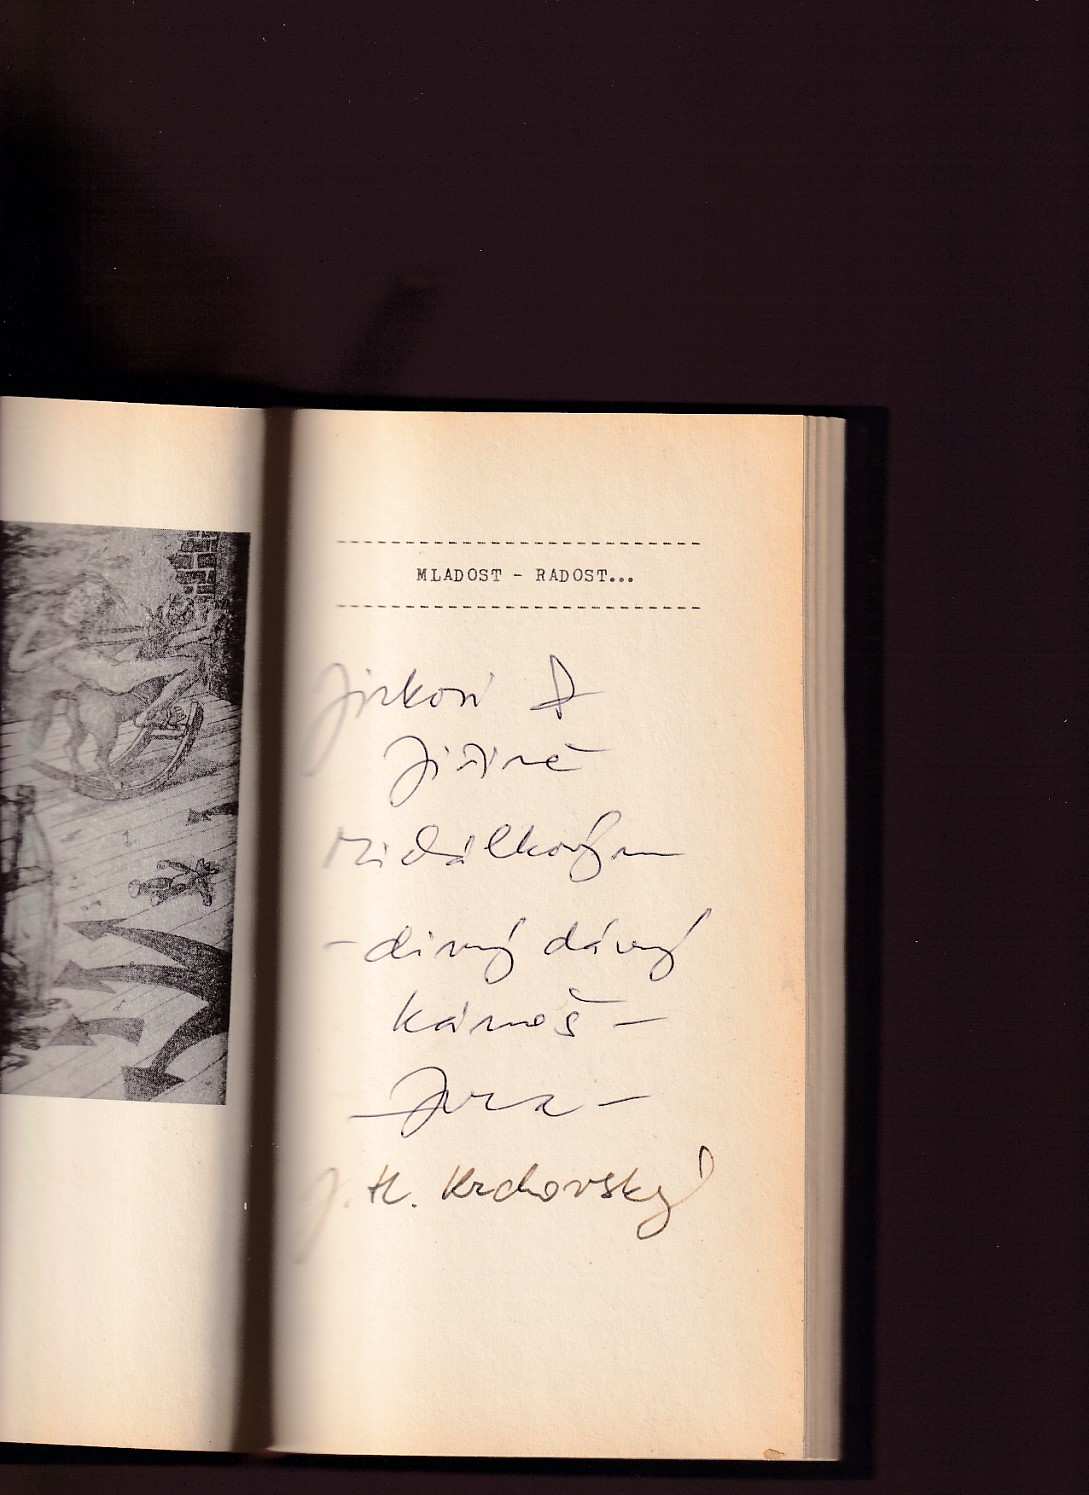 MLADOST - RADOST...
Jirkovi &
Jiřině
Michálkovým
- divný dávný
kámoš -
- Jura -
J. H. Krchovský